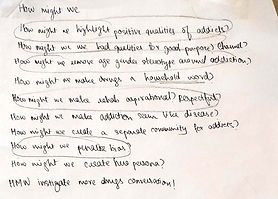 How might we
How might we highlight positive qualities of addicts?
How might we use bad qualities for good purpose? Channel?
How might we remove age gender stereotype around addiction?
How might we make drugs a household word?
How might we make rehab aspirational? Respectful?
How might we make addiction seem like disease?
How might we create a separate community for addicts?
How might we penalise bias?
How might we create persona?
HMW instigate more drugs conversation!